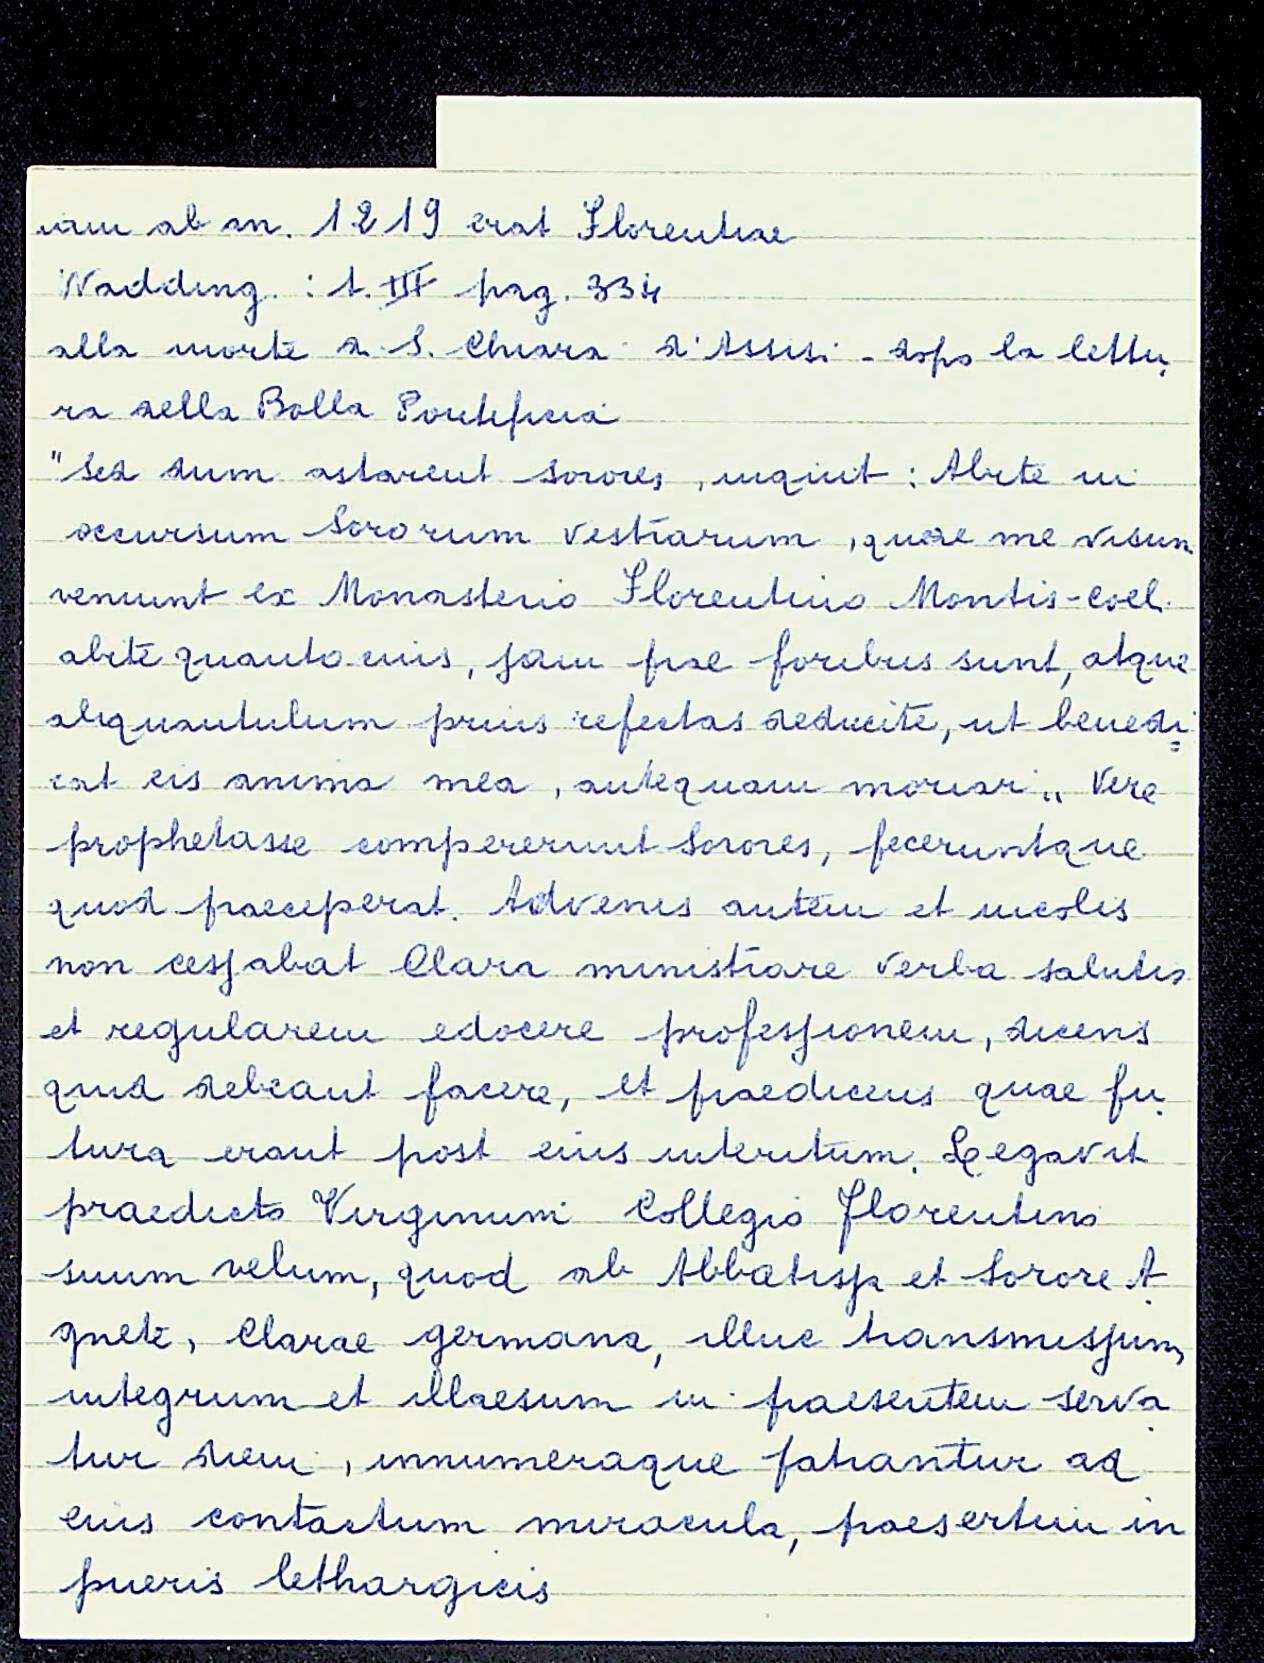 iam ab an. 1219 erat Florentiae
Wadding. : t. III pag. 334
alla morte d. S. Chiara d'Assisi - dopo la lettu.
ra della Bolla Pontificia
"Sed dum astarent sorores, inquit : Abite in
occursum Sororum vestrarum, quae me visum
veniunt ex Monasterio Florentino Montis-Coel.
abite quanto cius, jam prae foribus sunt, atque
aliquantulum prius refectas deducite, ut benedi=
cat eis anima mea, antequam moriar„ Vere
prophetasse compererunt Sorores, feceruntque
quod praeceperat. Advenis autem et incolis
non cessabat Clara ministrare verba salutis
et regularem edocere professionem, dicens
quid debeant facere, et praedicens quae fu.
tura erant post eius interitum. Legavit
praedicto Virginum Collegio Florentino
suum velum, quod ab Abbatissa et Sorore A
gnete, Clarae germana, illuc transmissum,
integrum et illaesum in praesentem serva
tur diem, innumeraque patrantur ad
eius contactum miracula, praesertim in
pueris lethargicis